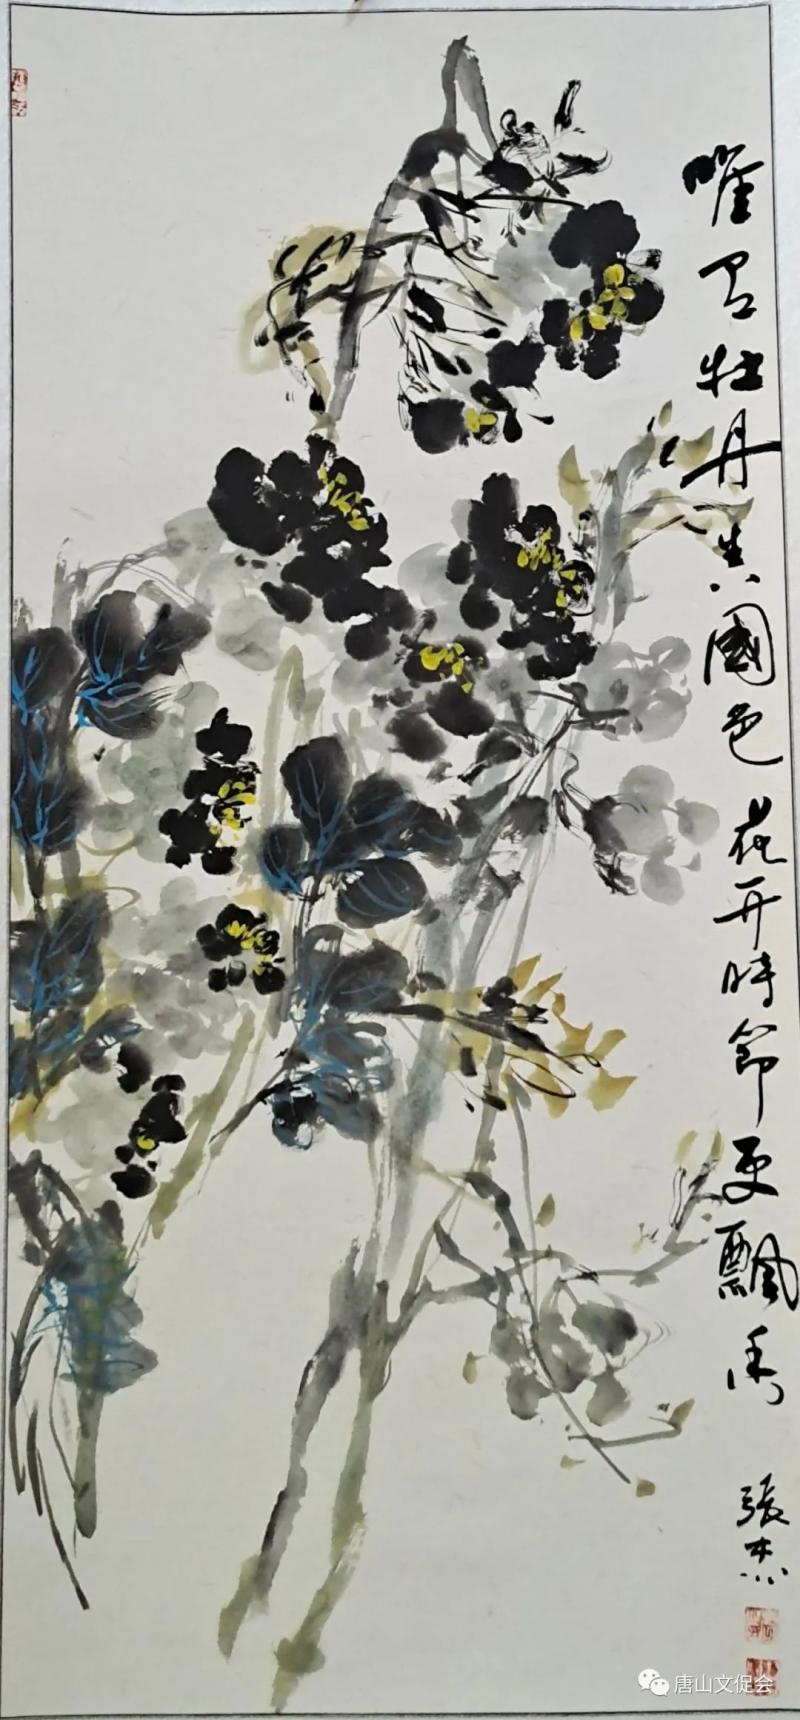 唯有牡丹真國色花开時節更飄香
張杰
唐山文促会